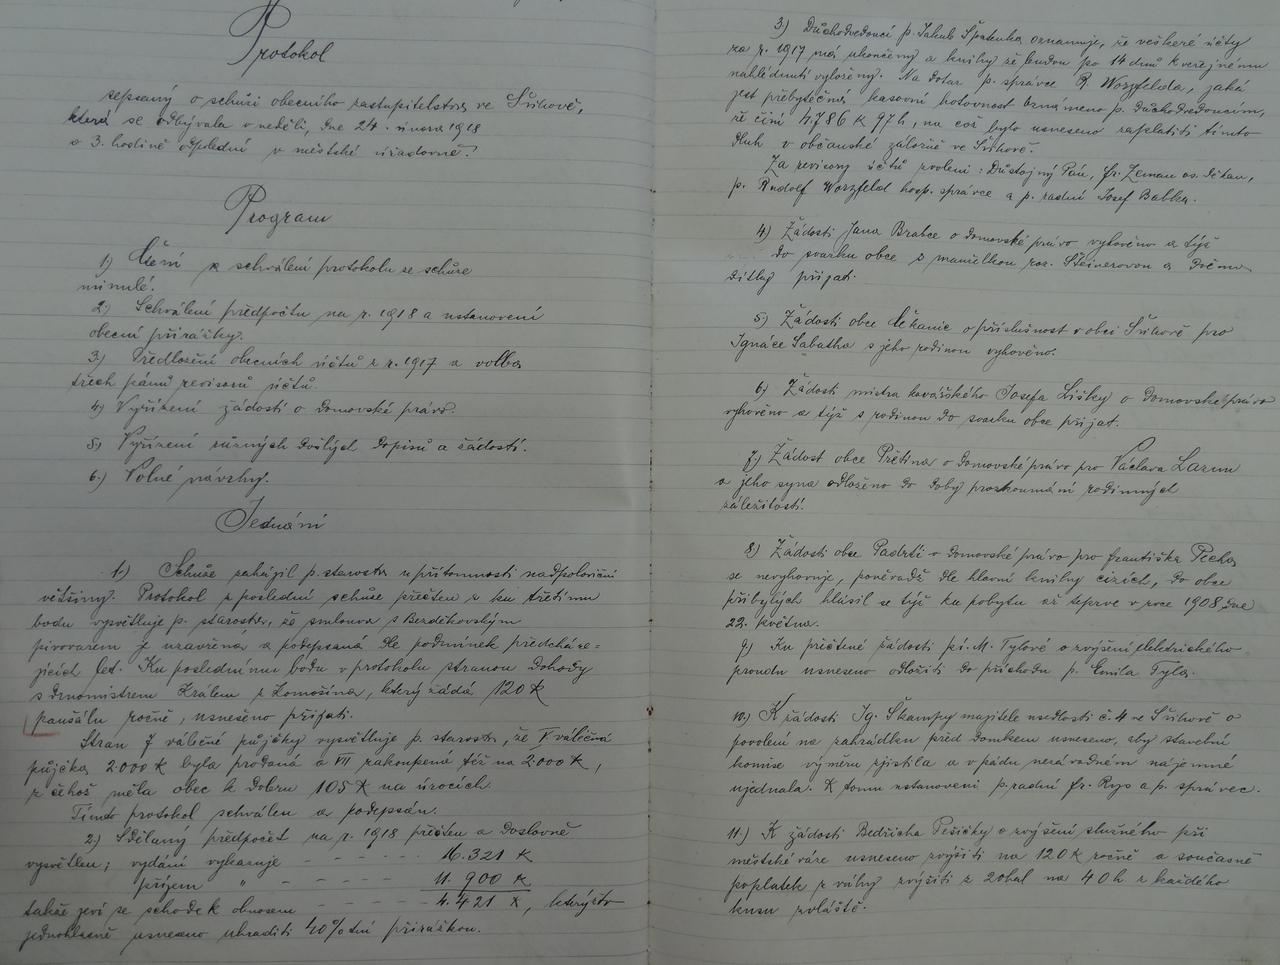 Protokol
sepsaný o schůzi obecního zastupitelstva ve Švihově,
která se odbývala v neděli, dne 24. února 1918
o 3. hodině odpolední v městské úřadovně.
Program
1) Čtení a schválení protokolu ze schůze
minulé.
2.) Schválení předpočtu na r. 1918 a ustanovení
obecní přirážky.
3) Předložení obecních účtů z r. 1917 a volba
třech pánů revisorů účtů.
4) Vyřízení žádostí o domovské právo.
5) Vyřízení různých došlých dopisů a žádostí.
6.) Volné návrhy.
Jednání
1.) Schůze zahájil p. starosta u přítomnosti nadpoloviční
většiny. Protokol z poslední schůze přečten a ku třetímu
bodu vysvětluje p. starosta, že smlouva s Bezděkovským
pivovarem je uzavřena a podepsaná dle podmínek předcháze=
jících let. Ku poslednímu bodu v protokolu stranou dohody
s drnomistrem Králem z Lomošína, který žádá 120 K
paušálu ročně, usneseno přijati.
Stran 7 válečné půjčky vysvětluje p. starosta, že V. válečná
půjčka 2.000 K byla prodaná a VII zakoupena též na 2.000 K,
z čehož měla obec k dobru 105 K na úrocích.
Tímto protokol schválen a podepsán.
2.) Sdělaný předpočet na r. 1918 přečten a doslovně
vysvětlen; vydání vykazuje - - - - - - 16.321 K
příjem " - - - - - - 11.900 K
takže jeví se schodek obnosem - - - - 4.421 K, kterýžto
jednohlasně usneseno uhraditi 40% tní přirážkou.
3.) Důchodvedoucí p. Jakub Špatenka oznamuje, že veškeré účty
za r. 1917 má ukončeny a knihy že budou po 14 dnů k veřejnému
nahlédnutí vyloženy. Na dotaz p. správce R. Worzfelda, jaká
jest přebytečná kasovní hotovnost oznámeno p. důchodvedoucím,
že činí 4.786 K 97 h, na což bylo usneseno zaplatiti tímto
dluh v občanské záložně ve Švihově.
Za revisory účtů zvoleni: Důstojný Pán, Fr. Zeman os. děkan,
p. Rudolf Worzfeld hosp. správce a p. radní Josef Babka.
4) Žádosti Jana Brabce o domovské právo vyhověno a týž
do svazku obce s manželkou roz. Steinerovou a dvěma
dítky přijat.
5) Žádosti obce Čekanic o příslušnost v obci Švihově pro
Ignáce Sabatha s jeho rodinou vyhověno.
6) Žádosti mistra kovářského Josefa Lišky o domovské právo
vyhověno a týž s rodinou do svazku obce přijat.
7.) Žádost obce Přetína o domovské právo pro Václava Lazna
a jeho syna odloženo do doby prozkoumání rodinných
záležitostí.
8) Žádosti obce Padrtě o domovské právo pro Františka Pecha
se nevyhovuje, poněvadž dle hlavní knihy cizích, do obce
přibylých hlásil se týž ku pobytu až teprve v roce 1908 dne
22. května.
9.) Ku přečtené žádosti pí. M. Tylové o zvýšení elektrického
proudu usneseno odložiti do příchodu p. Emila Tyla.
10.) K žádosti Ig. Škampy majitele usedlosti č. 4 ve Švihově o
povolení na zahrádku před domkem usneseno, aby stavební
komise výměru zjistila a v pádu nezávadném nájemné
ujednala. K tomu ustanoveni p. radní Fr. Rys a p. správec.
11.) K žádosti Bedřicha Pešičky o zvýšení služného při
městské váze usneseno zvýšiti na 120 K ročně a současně
poplatek z váhy zvýšiti z 20 hal na 40 h. z každého
kusu zvláště.